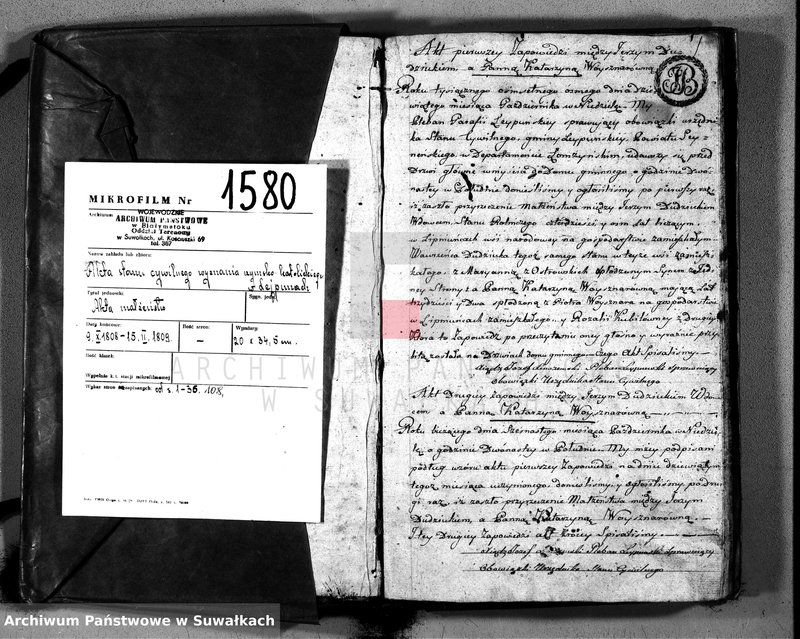 MIKROFILM Nr 1580
Archiwum
WOJEWÓDZKIE
ARCHIWUM PAŃSTWOWE
w Białymstoku
Oddział Terenowy
w Suwałkach, ul. Kościuszki 69
tel. 367
Nazwa zakładu lub zbioru:
Akta stanu cywilnego wyznania rzymsko-katolickiego
Tytuł jednostki:
Akta małżeństw
Sygn. jedn.
Daty końcowe:
9.X.1808-15.II.1809.
Ilość stron:
—
Wymiary
20 x 34,5 cm.
Ilość klatek:
Wypełnia k. t. stacji mikrofilmowej
Wykaz stron
od s. 1-36.
Akt pierwszey Zapowiedzi między Jerzym Dudzi
dziukiem, a Panną Katarzyną Woysznarowną
Roku tysiącznego osmsetnego osmego dnia dzie
wiątego miesiąca Października w Niedzielę. My
Pleban Parafii Leypuńskiey sprawujący obowiązki urzędni
ka Stanu Cywilnego, gminy Leypuńskiey, Powiatu Sey
neńskiego w Departamencie Łomżyńskim, udawszy się przed
Drzwi główne do Domu gminnego o godzinie Dwu
nastey w Południe donieśliśmy y ogłosiliśmy po pierwszy raz
iż zaszło przyrzeczenie Małżeństwa między Jerzym Dudziukiem
Wdowcem, Stanu Rolniczego czterdzieści y osm lat liczącym
w Lipniunach wsi narodowey na gospodarstwie zamieszkałym
Wawrzeńca Dudziuka tegoż samego Stanu w teyże wsi zamiesz
kałego z Maryanną z Ostrowskich spłodzonym Synem z ied
ney Strony, a Panną Katarzyną Woysznarowną maiącą lat
trzydzieści y Dwa spłodzoną z Piotra Woysznara na gospodarstwie
w Lipniunach zamieszkałego y Rozalii Kubilowney z Drugiey
Która to Zapowiedź po przeczytaniu oney głośno y wyraźnie przy
bita została na Drzwiach domu gminnego. Czego Akt Spisaliśmy
obowiązki Urzędnika Stanu Cywilnego
Akt Drugiey Zapowiedzi między Jerzym Dudziukiem Wdow
cem a Panną Katarzyną Woysznarowną
Roku bieżącego dnia Szesnastego miesiąca Października w Niedzie
lę o godzinie Dwunastey w Południe. My niżey podpisani
podług wzoru aktu pierwszey Zapowiedzi na dniu dziewiątym
tegoż miesiąca uczynionego donieśliśmy y ogłosiliśmy po dru
gi raz iż zaszło przyrzeczenie Małżeństwa między Jerzym
Dudziukiem, a Panną Katarzyną Woysznarowną
Obowiązki Urzędnika Stanu Cywilnego
ARCHIWUM PAŃ
W SUWAŁ
Archiwum Państwowe w Suwałkach